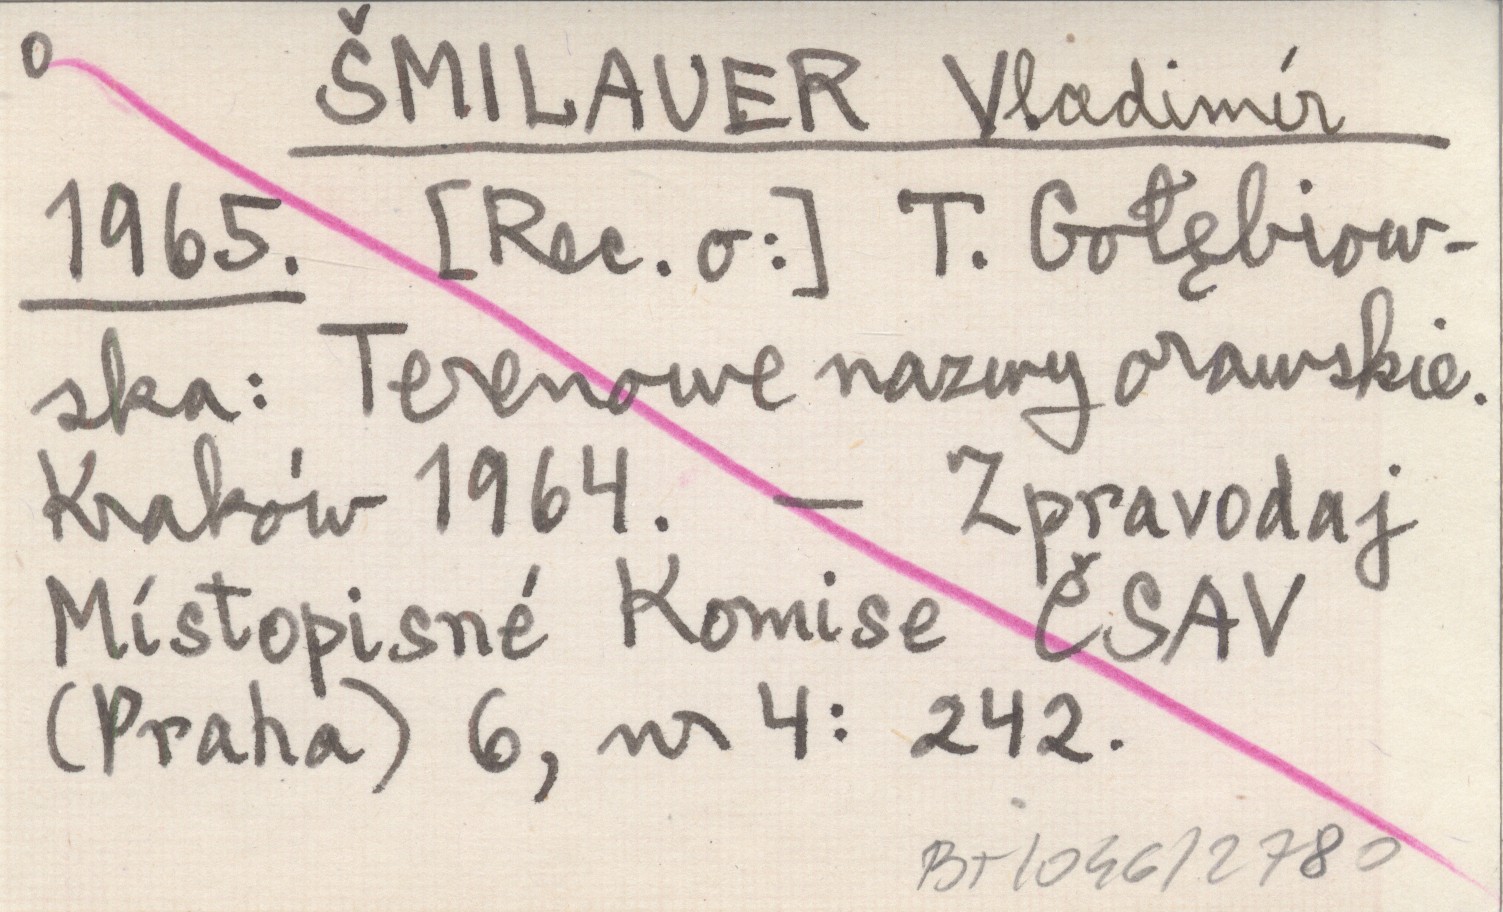 o ŠMILAUER Vladimír
1965. [Rec. o:] T. Gołębiow-
ska: Terenowe nazwy orawskie.
Kraków 1964. — Zpravodaj
Místopisné Komise ČSAV
(Praha) 6, nr 4: 242.
BT/046/2780